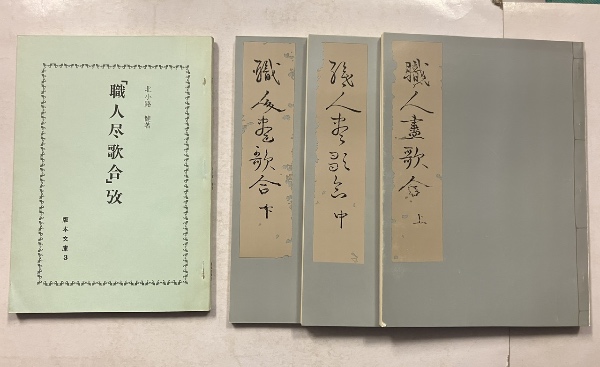 北小路 健著
「職人尽歌合」攷
版本文庫3
職人盡歌合 上
職人盡歌合 中
職人盡歌合 下